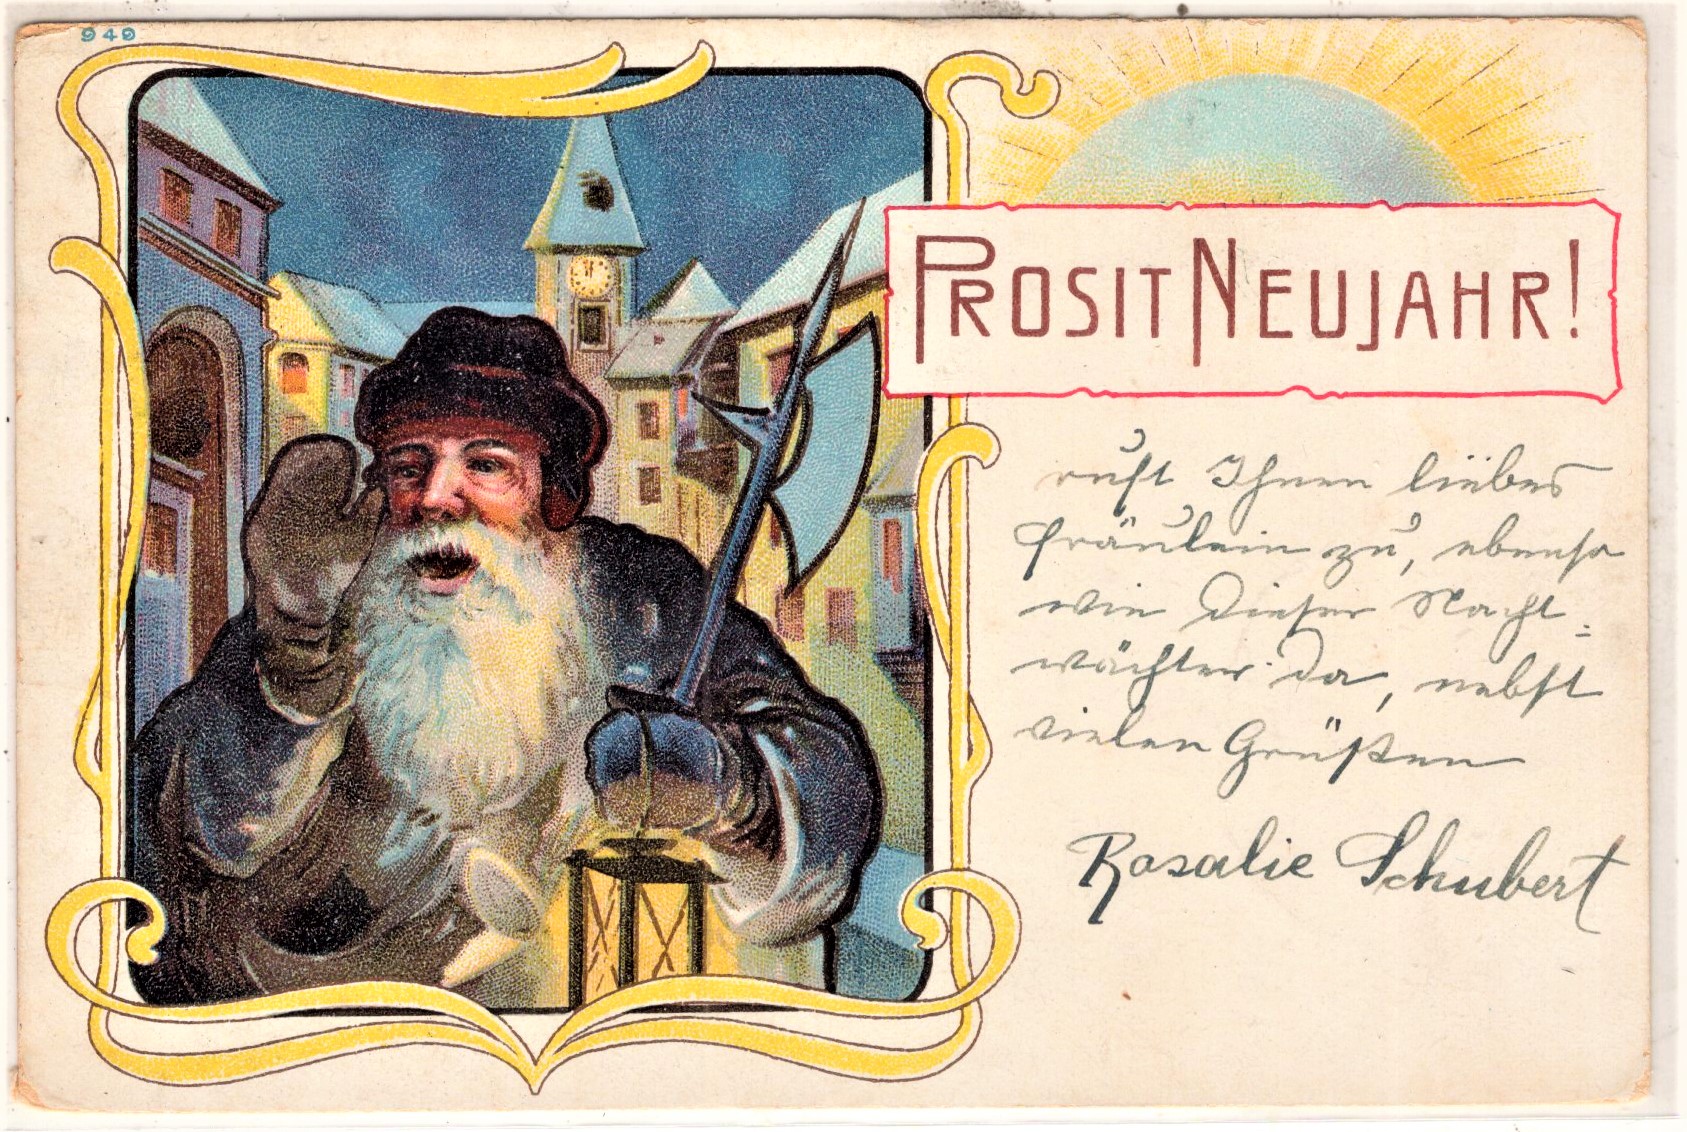 949
PROSIT NEUJAHR!
ruft Ihnen liebes
Fräulein zu, ebenso
wie dieser Nacht-
wächter da, nebst
vielen Grüßen
Rosalie Schubert